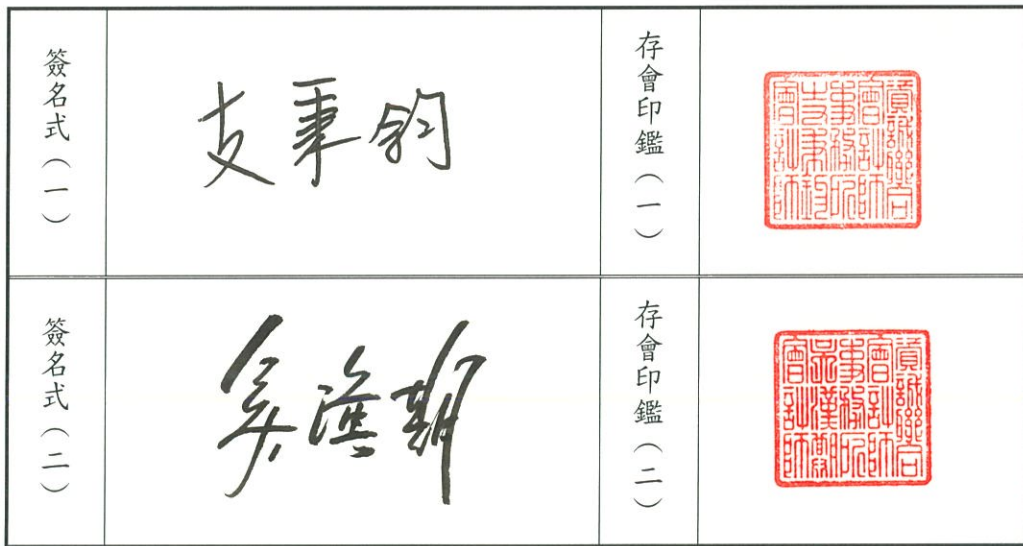 簽名式（一）
支秉鈞
存會印鑑（一）
資誠聯合
會計師
事務所
支秉鈞
會計師
簽名式（二）
吳漢期
存會印鑑（二）
資誠聯合
會計師
事務所
吳漢期
會計師